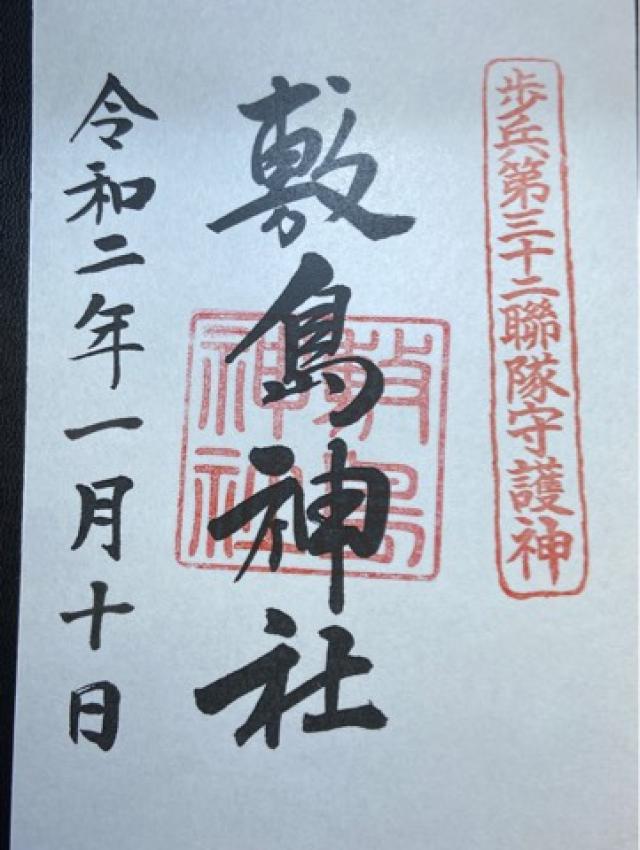 歩兵第三十二聯隊守護神
敷島神社
敷島
神社
令和二年一月十日